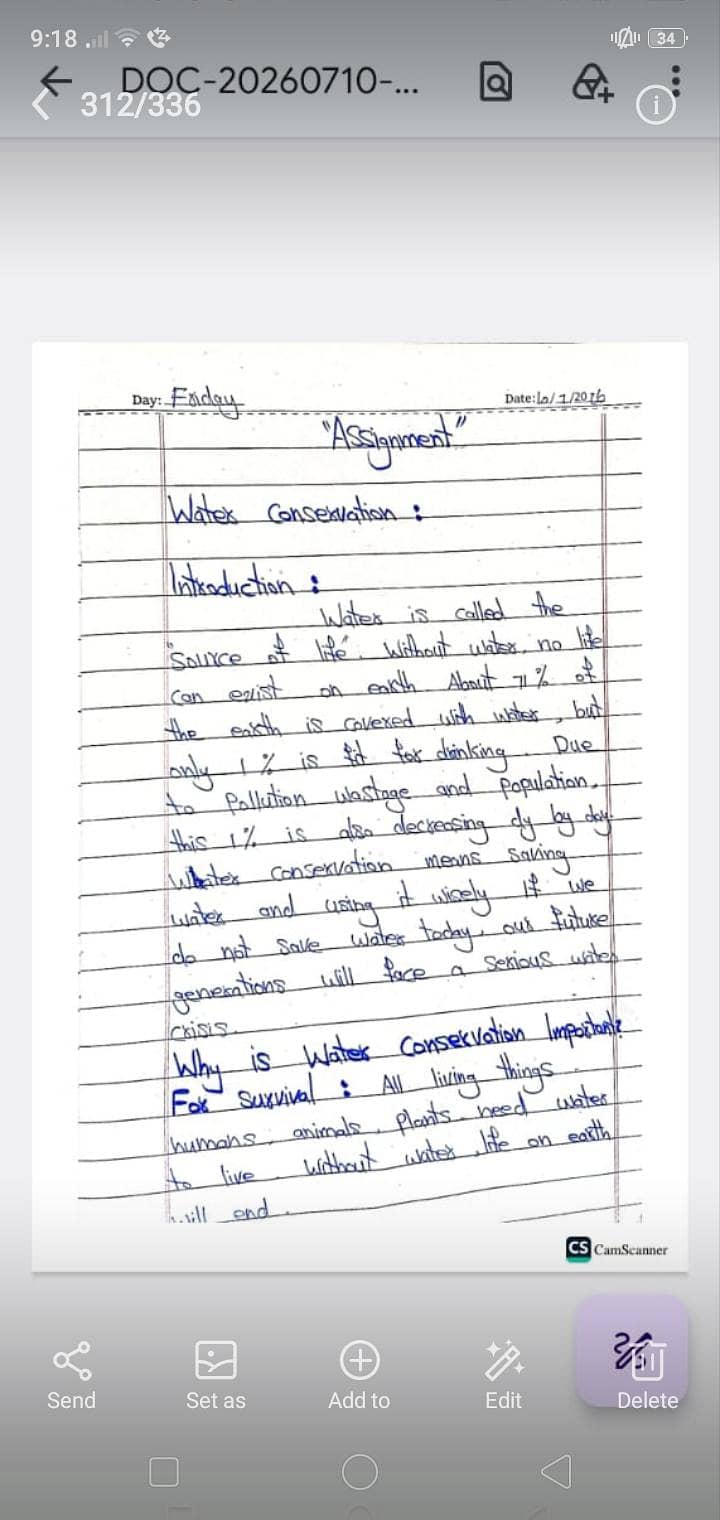 9:18
34
DOC-20260710-...
312/336
Day: Friday
Date: 10/7/2026
"Assignment"
Water Conservation :
Introduction :
Water is called the
"Source of life". Without water, no life
can exist on earth About 71% of
the earth is covered with water, but
only 1% is fit for drinking. Due
to Pollution wastage and population,
this 1% is also decreasing dy by day.
Whater conservation means saving
water and using it wisely If we
do not save water today, our future
generations will face a serious water
crisis.
Why is Water Conservation Important?
For Survival : All living things
humans, animals, plants need water
to live. Without water, life on earth
will end.
CS CamScanner
Send
Set as
Add to
Edit
Delete